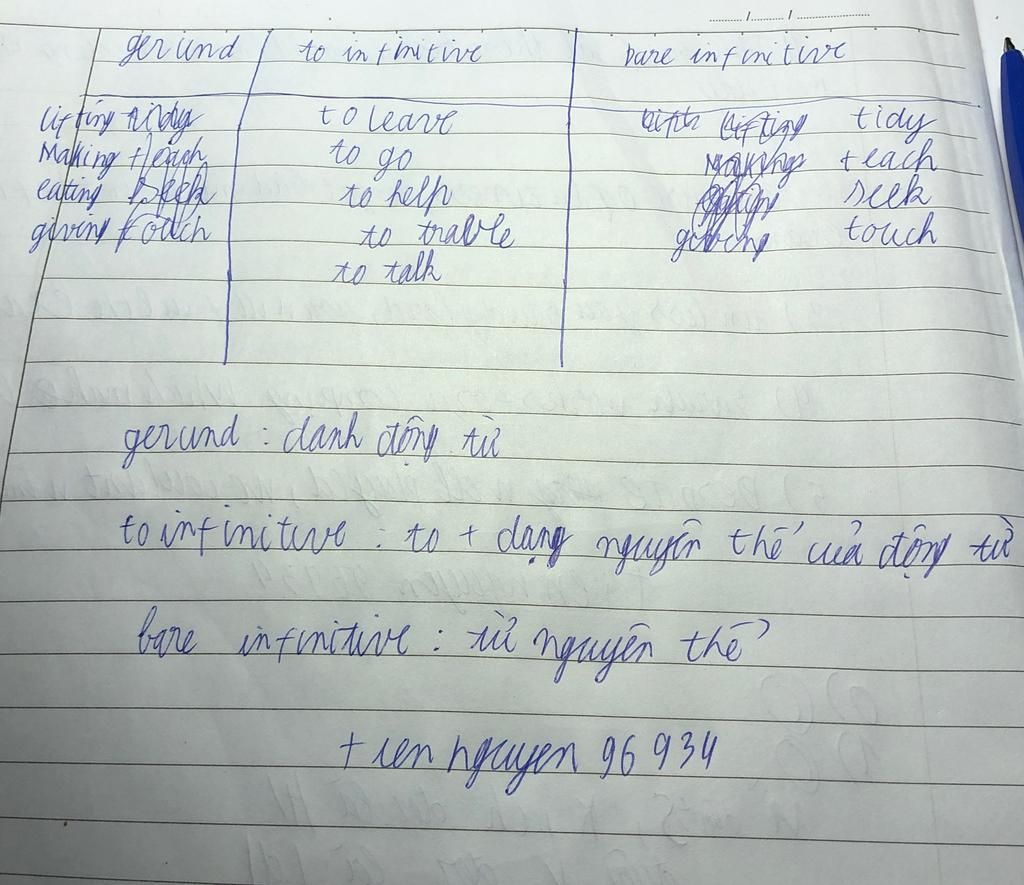 gerund to infinitive bare infinitive
lifting tidy to leave lifting tidy
Making teach to go making teach
eating seek to help seek
giving touch to trable giving touch
to talk
gerund : danh động từ
to infinitive : to + dạng nguyên thể của động từ
bare infinitive : từ nguyên thể
tien nguyen 96 934